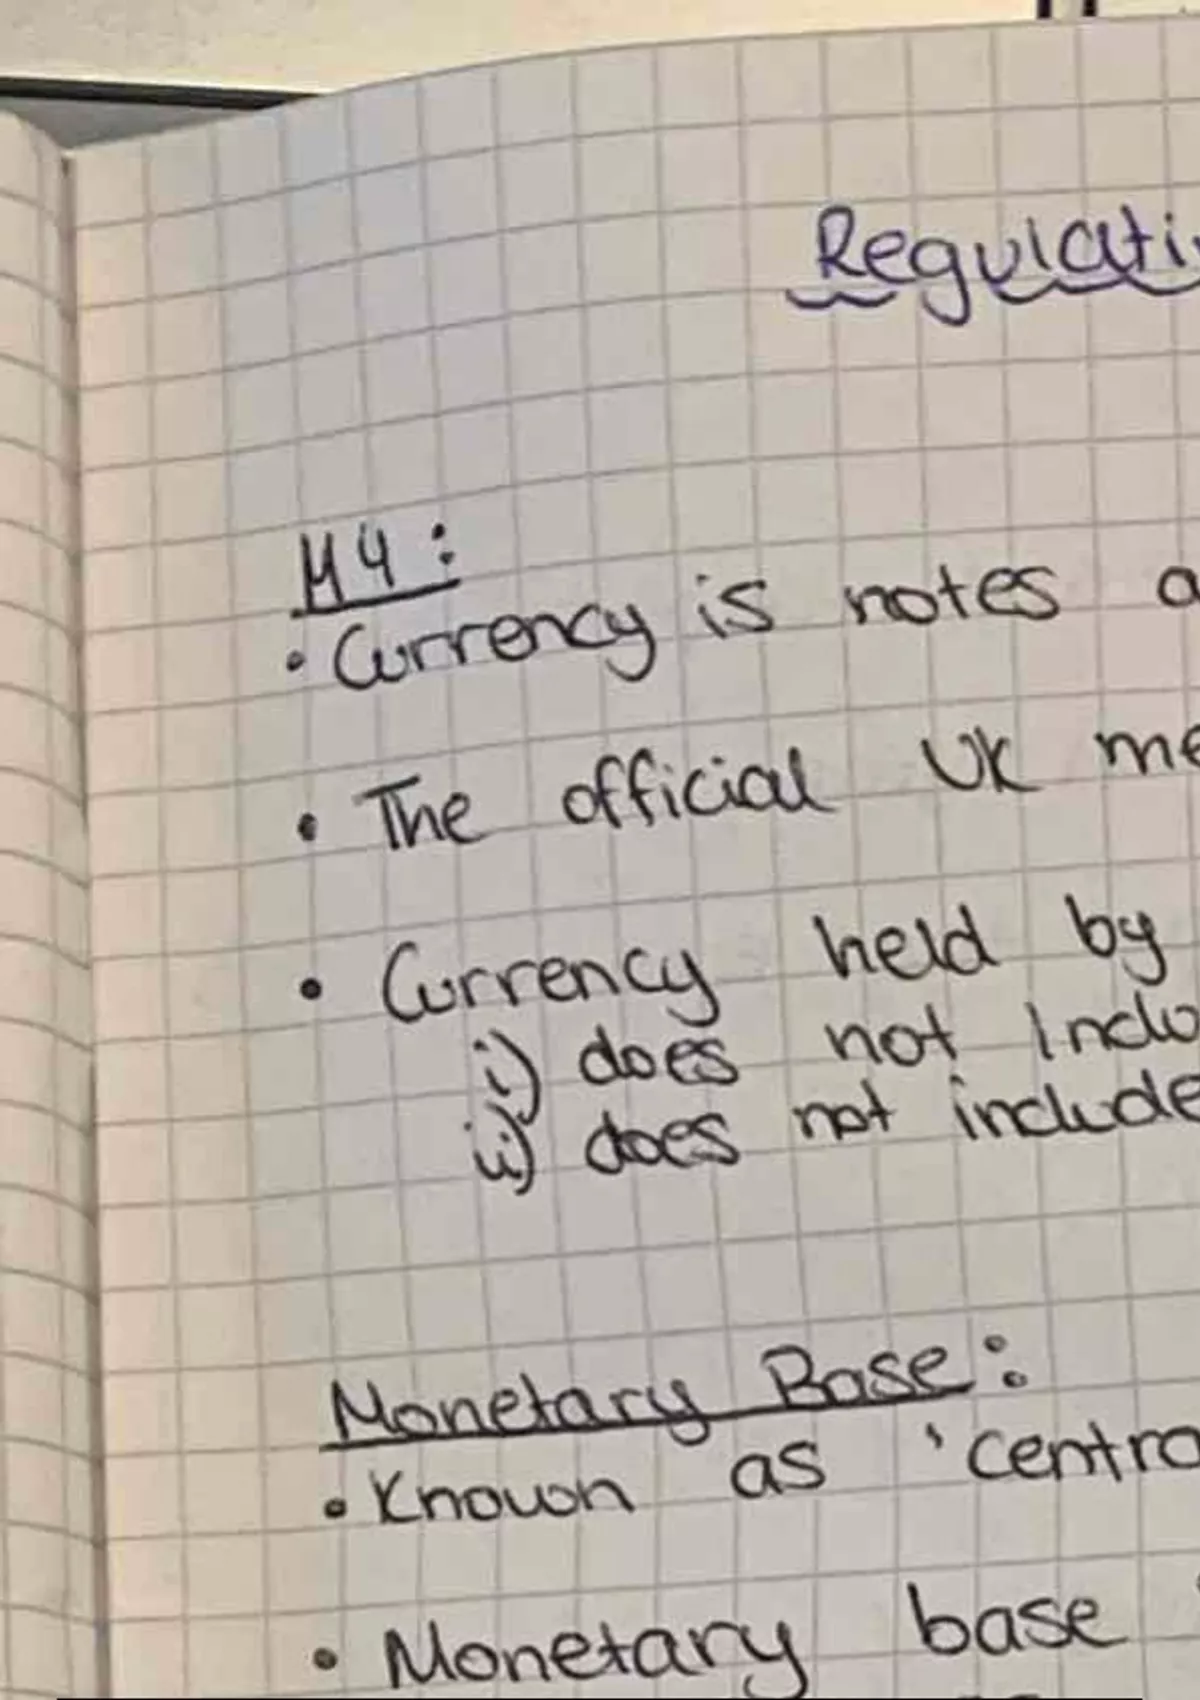 Regulati
M4:
• Currency is notes a
• The official UK me
• Currency held by
i) does not Inclu
ii) does not include
Monetary Base:
• Known as 'centra
• Monetary base